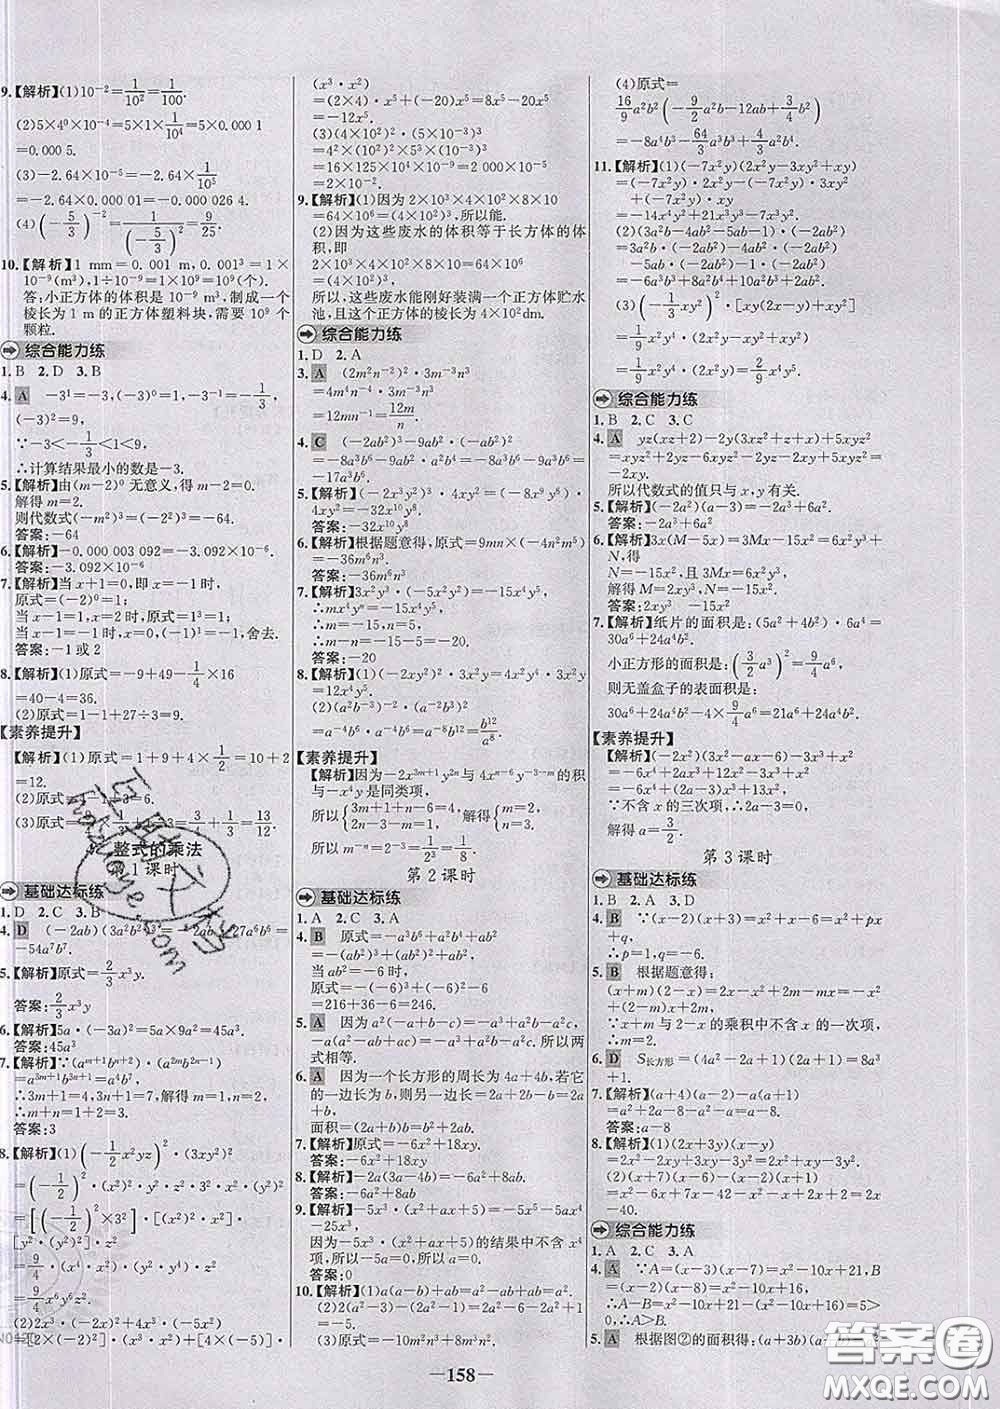 9.【解析】(1)10⁻²=1/10²=1/100.
(2)5×4⁰×10⁻⁴=5×1×1/10⁴=5×0.000 1
=0.000 5.
(3)-2.64×10⁻⁵=-2.64×1/10⁵
=-2.64×0.000 01=-0.000 026 4.
(4)(-5/3)⁻²=1/(-5/3)²=9/25.
10.【解析】1 mm=0.001 m,0.001³=1×
10⁻⁹(m³),1÷10⁻⁹=1×10⁹=10⁹(个).
答:小正方体的体积是 10⁻⁹ m³,制成一个
棱长为 1 m 的正方体塑料块,需要 10⁹ 个
颗粒.
综合能力练
1.B 2.D 3.B
4. A -3¹=-3,(-3)⁰=1,-3⁻¹=-1/3,
(-3)²=9,
∵-3<-1/3<1<9,
∴计算结果最小的数是-3.
5.【解析】由(m-2)⁰ 无意义,得 m-2=0.
解得 m=2.
则代数式(-m²)³=(-2²)³=-64.
答案:-64
6.【解析】-0.000 003 092=-3.092×10⁻⁶.
答案:-3.092×10⁻⁶
7.【解析】当 x+1=0,即 x=-1 时,
原式=(-2)⁰=1;
当 x-1=1,x=2 时,原式=1³=1;
当 x-1=-1,x=0 时,(-1)¹=-1,舍去.
答案:-1 或 2
8.【解析】(1)原式=-9+49-1/4×16
=40-4=36.
(2)原式=1-1+27÷3=9.
【素养提升】
【解析】(1)原式=1+9+4×1/2=10+2
=12.
(3)原式=
=3/4+1/3=13/12.
整式的乘法
第 1 课时
基础达标练
1.D 2.C 3.B
4. D (-2ab)(3a²b²)³=-2ab·27a⁶b⁶=
-54a⁷b⁷.
5.【解析】原式=2/3x³y.
答案:2/3x³y
6.【解析】5a·(-3a)²=5a×9a²=45a³.
答案:45a³
7.【解析】∵(aᵐ⁺¹bⁿ⁺²)·(a²ᵐb²ⁿ⁻¹)
=a³ᵐ⁺¹b³ⁿ⁺¹=a⁴b⁷,
∴3m+1=4,3n+1=7,解得 m=1,n=2,
∴m+n=1+2=3.
答案:3
8.【解析】(1)(-1/2x²yz)²·(3xy²)²
=(-1/2)²·(x²)²·y²·z²·3²·x²·(y²)²
=[(-1/2)²×3²]·[(x²)²·x²]·
[y²·(y²)²]·z²
=9/4·(x⁴·x²)·(y²·y⁴)·z²
=9/4x⁶y⁶z².
(2)2x³·(-2x)²+4x²·(-5)·(x³)
=[2×(-2)²]·(x³·x²)+[4×(-5)]·
(x³·x²)
=(2×4)·x⁵+(-20)x⁵=8x⁵-20x⁵
=-12x⁵.
(3)(4×10²)²·(5³×10⁻³)
=4²×(10²)²·(5³×10⁻³)
=16×125×10⁴×10⁻³=2 000×10⁻³... 
9.【解析】(1)因为 2×10³×4×10²×8×10
=64×10⁶=(4×10²)³,所以能.
(2)因为这些废水的体积等于长方体的体
积,即
2×10³×4×10²×8×10=64×10⁶
=(4×10²)³,
所以,这些废水能刚好装满一个正方体贮水
池,且这个正方体的棱长为 4×10²dm.
综合能力练
1.D 2.A
3. A (2m²n²)²·3m⁻³n³
=4m⁴n⁻⁴·3m⁻³n³
=12mn⁻¹=12m/n.
4. C (-2ab²)³-9ab²·(-ab²)²
=-8a³b⁶-9ab²·a²b⁴=-8a³b⁶-9a³b⁶=
-17a³b⁶.
5.【解析】(-2x³y²)³·4xy²=(-8x⁹y⁶)·
4xy²=-32x¹⁰y⁸.
答案:-32x¹⁰y⁸
6.【解析】根据题意得,原式=9mn×(-4n²m⁵)
=-36m⁶n³.
答案:-36m⁶n³
7.【解析】3x²y³·(-5x²y²)=-15x⁴y⁵,
∴mx⁴yⁿ=-15x⁴y⁵,
∴m=-15,n=5,
∴m-n=-15-5=-20.
答案:-20
8.【解析】(1)(-2xy²)²·3x²y=4x²y⁴·3x²y
=12x⁴y⁵.
【素养提升】
【解析】因为-2x³ᵐ⁺¹y²ⁿ与 4xⁿ⁻⁶y⁻³⁻ᵐ的积
与-x⁴y 是同类项,
所以{3m+1+n-6=4, 2n-3-m=1, 解得{m=2, n=3,
所以 m⁻ⁿ=2⁻³=1/2³=1/8.
第 2 课时
基础达标练
1.A 2.C 3.A
4. B 原式=-a³b⁶+a²b⁴+ab²
=-(ab²)³+(ab²)²+ab²,
当 ab²=-6 时,
原式=-(-6)³+(-6)²-6
=216+36-6=246.
5. A 因为 a²(-a+b-c)=-a³+a²b-a²c,
-a(a²-ab+ac)=-a³+a²b-a²c.所以两
式相等.
6. A 因为一个长方形的周长为 4a+4b,若它
的一边长为 b,则另一边长=2a+2b-b=2a+b,
面积=(2a+b)b=2ab+b².
7.【解析】原式=-6x²+18xy.
答案:-6x²+18xy
8.【解析】-2a(3a-4b)=-6a²+8ab.
答案:-6a²+8ab
9.【解析】-5x³·(x²+ax+5)=-5x⁵-5ax⁴
-25x³,
因为-5x³·(x²+ax+5)的结果中不含 x⁴
项,所以-5a=0,所以 a=0.
答案:0
10.【解析】(1)a(a+b)-ab=a²+ab-ab=a².
(3)原式=-10m²n³+8m³n².
(4)原式=
16/9a²b²(-9/2a²b-12ab+3/4b²)
=-8a⁴b³-64/3a³b³+4/3a²b⁴.
11.【解析】(1)(-7x²y)(2x²y-3xy²+xy)
=(-7x²y)·2x²y-(-7x²y)·3xy²
+(-7x²y)·xy
=-14x⁴y²+21x³y³-7x³y².
(2)(3a²b-4ab²-5ab-1)·(-2ab²)
=3a²b·(-2ab²)-4ab²·(-2ab²)
-5ab·(-2ab²)-1·(-2ab²)
=-6a³b³+8a²b⁴+10a²b³+2ab².
(3)(-1/3xy²)²·[xy(2x-y)+xy²]
=1/9x²y⁴·(2x²y-xy²+xy²)
=1/9x²y⁴·2x²y
综合能力练
1.B 2.C 3.C
4. A yz(xz+2)-2y(3xz²+z+x)+5xyz²
=xyz²+2yz-6xyz²-2yz-2xy+5xyz²=
-2xy.
所以代数式的值只与 x,y 有关.
5.【解析】(-2a²)(a-3)=-2a³+6a².
答案:-2a³+6a²
6.【解析】3x(M-5x)=3Mx-15x²=6x²y³+
N,得
N=-15x²,且 3Mx=6x²y³,
解得 M=2xy³,N=-15x².
答案:2xy³ -15x²
7.【解析】纸片的面积是:(5a²+4b²)·6a⁴=
30a⁶+24a⁴b².
小正方形的面积是:(3/2a³)²=9/4a⁶,
则无盖盒子的表面积是:
30a⁶+24a⁴b²-4×9/4a⁶=21a⁶+24a⁴b².
【素养提升】
【解析】(-2x²)(3x²-ax-6)-3x³+x²
=-6x⁴+2ax³+12x²-3x³+x²
=-6x⁴+(2a-3)x³+13x²,
∵不含 x 的三次项,∴2a-3=0,
解得 a=3/2.
第 3 课时
基础达标练
1.B 2.A 3.A
4. B ∵(x-2)(x+3)=x²+x-6=x²+px
+q,
∴p=1,q=-6.
5. B 根据题意得:
(x+m)(2-x)=2x-x²+2m-mx=
-x²+(2-m)x+2m,
∵x+m 与 2-x 的乘积中不含 x 的一次项,
∴m=2.
6. D S长方形=(4a²-2a+1)(2a+1)=8a³+1.
7.【解析】(a+4)(a-2)-a(a+1)
=a²+2a-8-a²-a=a-8.
答案:a-8
8.【解析】(1)(2x+3y)(x-y)
=2x²-2xy+3xy-3y²=2x²+xy-3y².
(2)(x+7)(x-6)-(x-2)(x+1)
=x²-6x+7x-42-x²-x+2x+2=2x
-40.
综合能力练
1.A 2.C 3.A
4. A ∵A=(x-3)(x-7)=x²-10x+21,B
=(x-2)(x-8)=x²-10x+16,
∴A-B=x²-10x+21-(x²-10x+16)=5>
0,∴A>B.
5. A 根据图②的面积得:(a+3b)(a+
—158—
答案圈
MXQE.COM